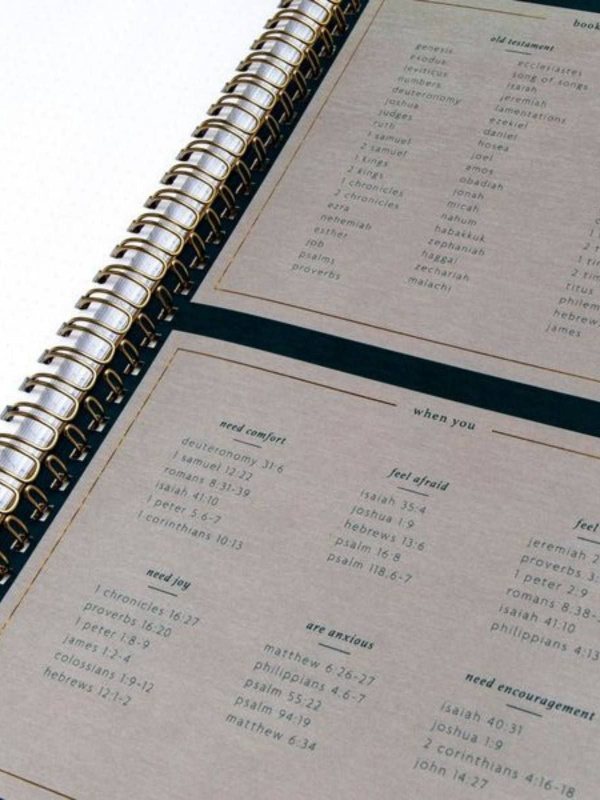 book
old testament
genesis
exodus
leviticus
numbers
deuteronomy
joshua
judges
ruth
1 samuel
2 samuel
1 kings
2 kings
1 chronicles
2 chronicles
ezra
nehemiah
esther
job
psalms
proverbs
ecclesiastes
song of songs
isaiah
jeremiah
lamentations
ezekiel
daniel
hosea
joel
amos
obadiah
jonah
micah
nahum
habakkuk
zephaniah
haggai
zechariah
malachi
1 ti
2 tim
titus
philem
hebrew
james
when you
need comfort
deuteronomy 31:6
1 samuel 12:22
romans 8:31-39
isaiah 41:10
1 peter 5:6-7
1 corinthians 10:13
feel afraid
isaiah 35:4
joshua 1:9
hebrews 13:6
psalm 16:8
psalm 118:6-7
feel
jeremiah 2
proverbs 3:
1 peter 2:9
romans 8:38-
isaiah 41:10
philippians 4:13
need joy
1 chronicles 16:27
proverbs 16:20
1 peter 1:8-9
james 1:2-4
colossians 1:9-12
hebrews 12:1-2
are anxious
matthew 6:26-27
philippians 4:6-7
psalm 55:22
psalm 94:19
matthew 6:34
need encouragement
isaiah 40:31
joshua 1:9
2 corinthians 4:16-18
john 14:27